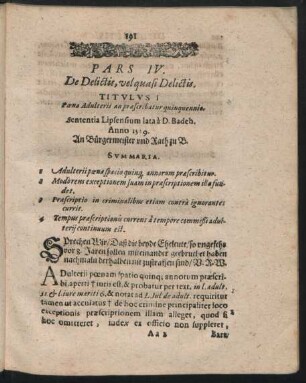 191
PARS IV.
De Delictis, vel quasi Delictis.
TITVLVS I
Pœna Adulterii an præscribatur quinquennio.
Sententia Lipsensium lata à D. Badeh.
Anno 1519.
An Bürgermeister und Rath zu B.
SVMMARIA.
Adulterii pœna spacio quinq. annorum præscribitur.
exceptionem suam in præscriptionem ista fun-
det.
Præscriptio in criminalibus etiam contrà ignorantes
currit.
Tempus præscriptionis currens à tempore commissi adul-
terij continuum est.
Sprechen Wir/ Daß die beyde Eheleute/ so ungefehr
vor 8. Jaren sollen mit einander gebruet haben
nachmals derhalben nit zustraffen sind/ V. R. W.
Adulterii pœnam spatio quinq; annorum præscri-
bi aperti † iuris est, & probatur per text. in l. adult.
& Liure meriti 6, & notat. ad l. Iul de adult. requiritur
tamen ut † de hoc crimine principaliter loco
exceptionis præscriptionem illam alleget, quod si
hoc omitteret, iudex ex officio non suppleret,
A a 2